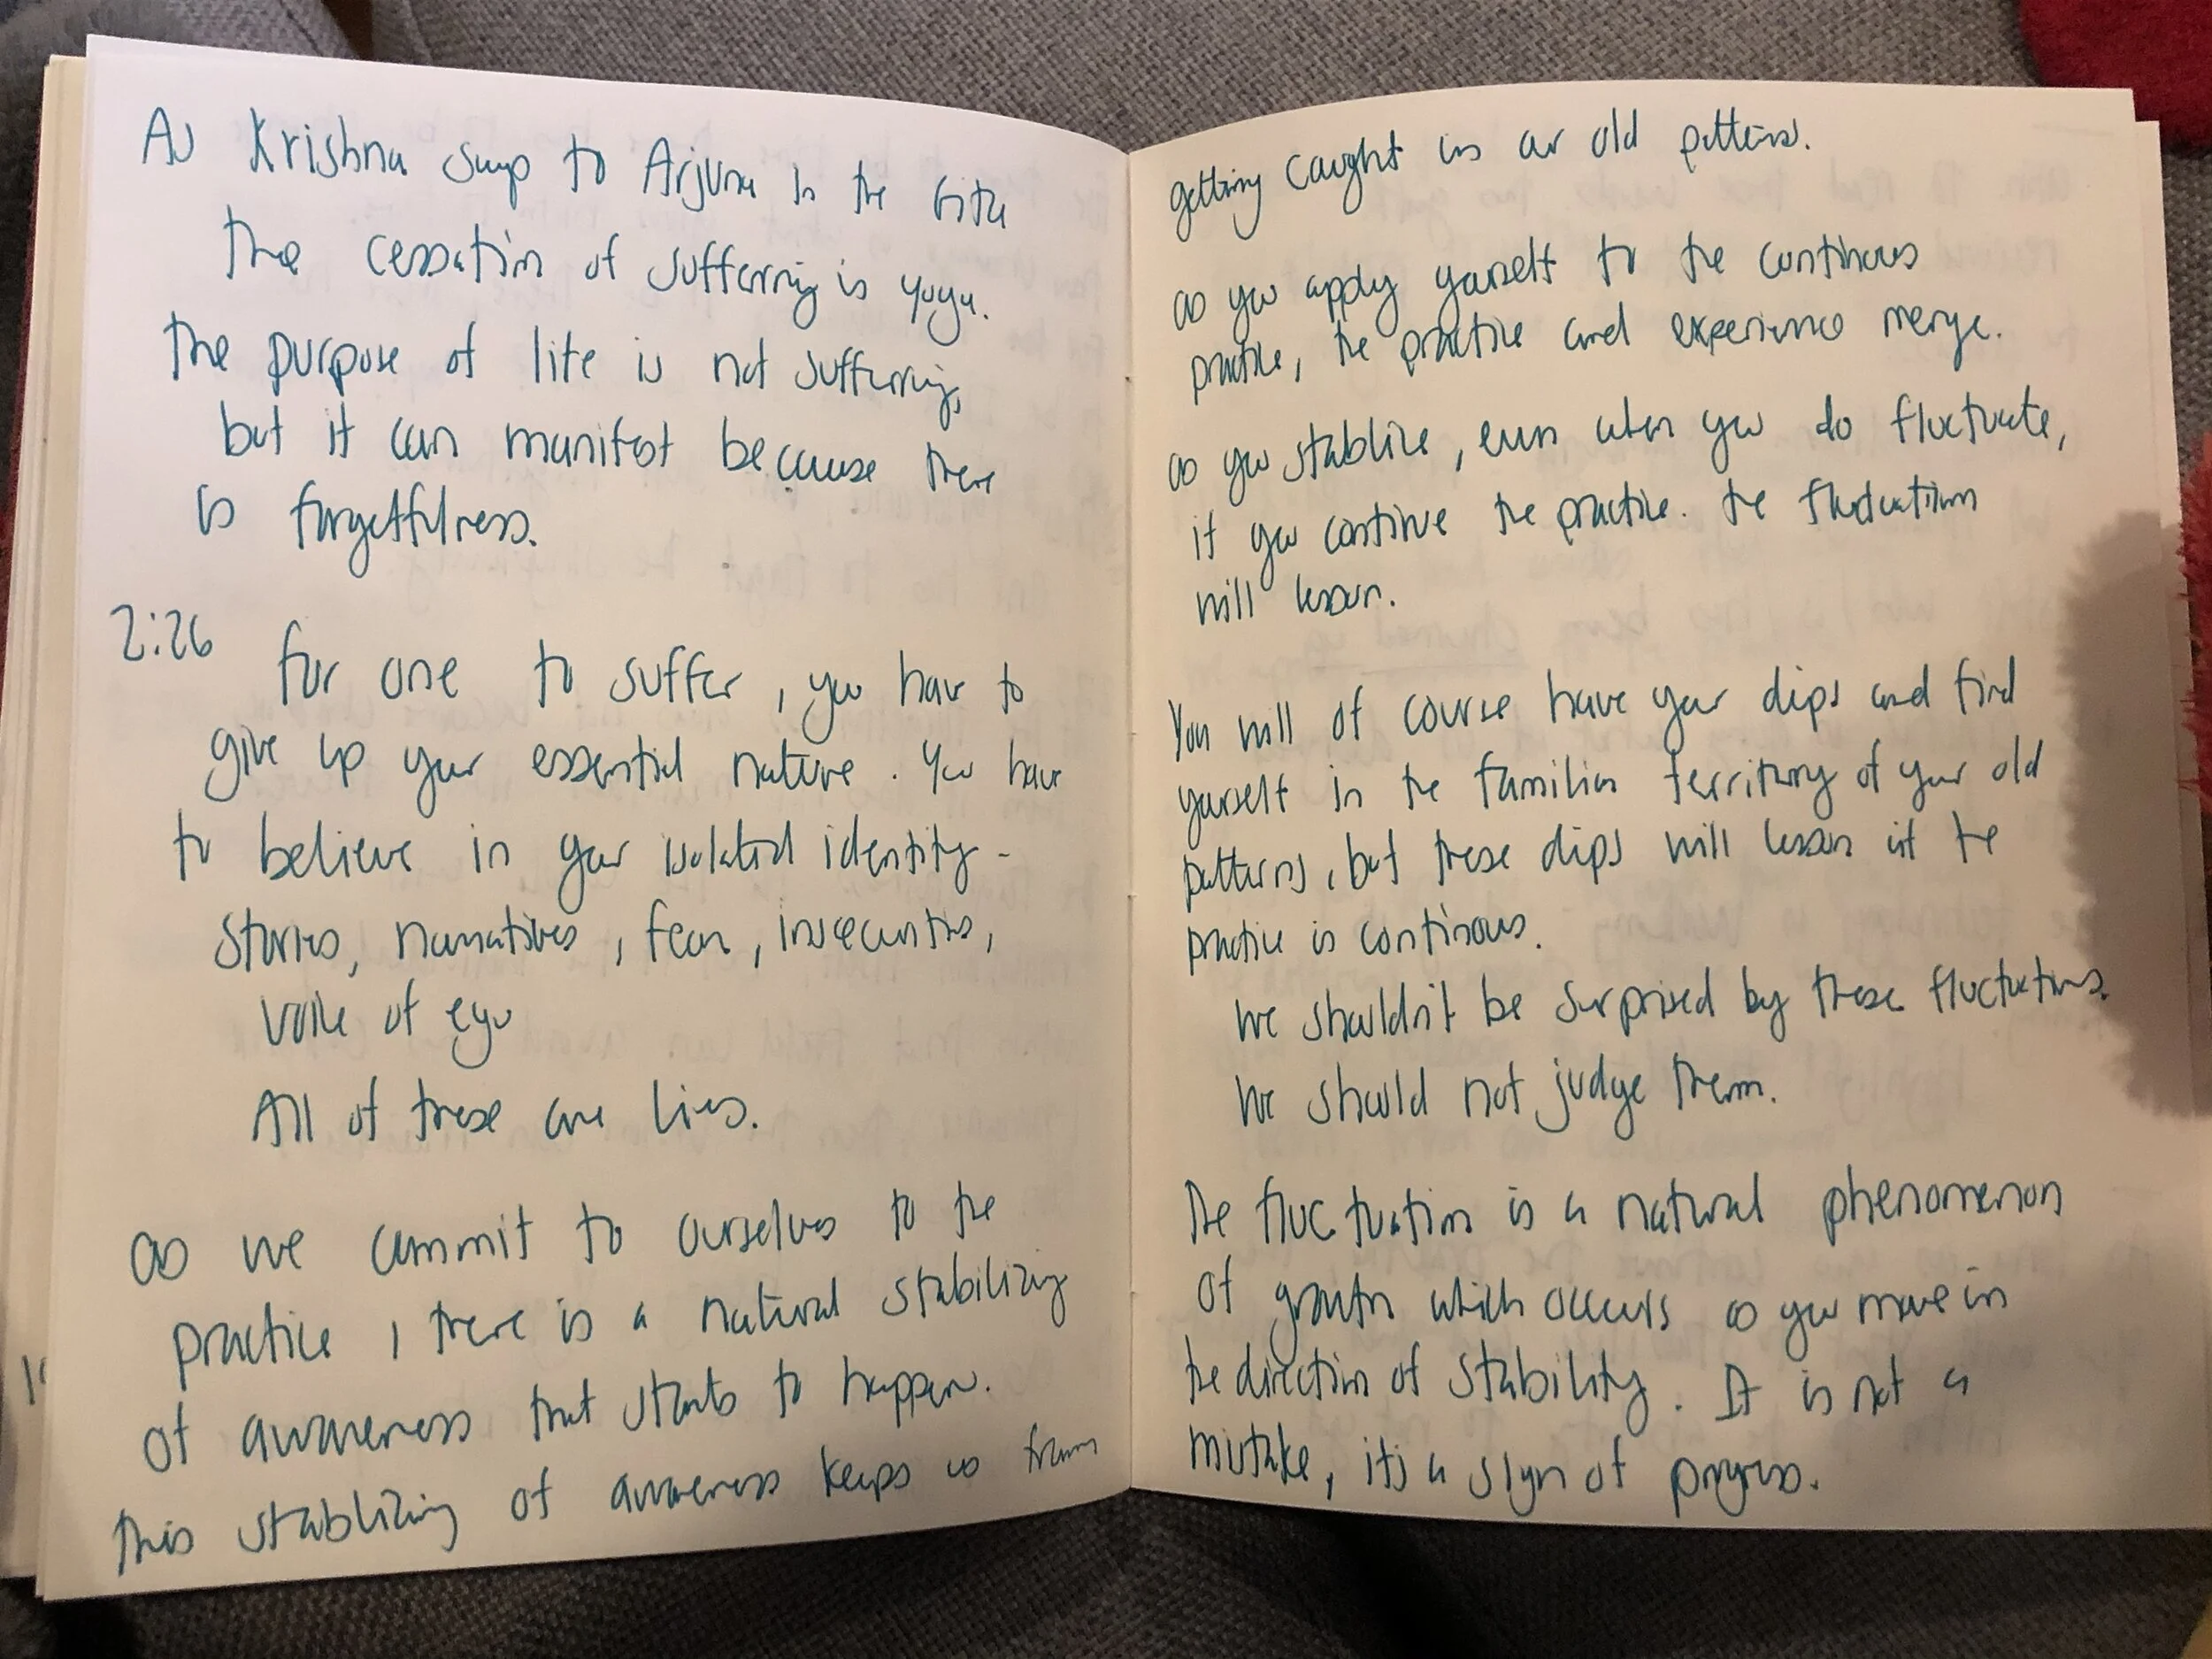 As Krishna says to Arjuna in the Gita
the cessation of suffering is yoga.
The purpose of life is not suffering,
but it can manifest because there
is forgetfulness.
2:26
for one to suffer, you have to
give up your essential nature. You have
to believe in your isolated identity -
stories, narratives, fear, insecurities,
voice of ego
All of these are lies.
as we commit to ourselves to the
practice, there is a natural stabilizing
of awareness that starts to happen.
This stablizing of awareness keeps us from
getting caught in our old patterns.
as you apply yourself to the continous
practice, the practice and experience merge.
as you stablize, even when you do fluctuate,
if you continue the practice. the fluctuations
will lessen.
You will of course have your dips and find
yourself in the familiar territory of your old
patterns, but these dips will lessen if the
practice is continous.
We shouldn't be surprised by these fluctuations.
We should not judge them.
The fluctuation is a natural phenomenon
of growth which occurs as you move in
the direction of stability. It is not a
mistake, it's a sign of progress.